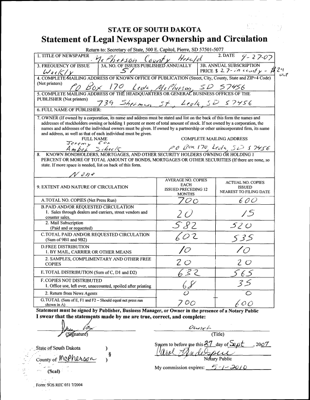 STATE OF SOUTH DAKOTA
Statement of Legal Newspaper Ownership and Circulation
Return to: Secretary of State, 500 E. Capitol, Pierre, SD 57501-5077
1. TITLE OF NEWSPAPER McPherson County Herald 2. DATE 9-27-07
3. FREQUENCY OF ISSUE Weekly 3A. NO. OF ISSUES PUBLISHED ANNUALLY 51 3B. ANNUAL SUBSCRIPTION PRICE $
4. COMPLETE MAILING ADDRESS OF KNOWN OFFICE OF PUBLICATION (Street, City, County, State and ZIP+4 Code) (Not printers)
PO Box 170 Leola McPherson SD 57456
5. COMPLETE MAILING ADDRESS OF THE HEADQUARTERS OR GENERAL BUSINESS OFFICES OF THE PUBLISHER (Not printers)
739 Sherman St, Leola, SD 57456
6. FULL NAME OF PUBLISHER:
7. OWNER (If owned by a corporation, its name and address must be stated and also on the back of this form the names and
addresses of stockholders owning or holding 1 percent or more of total amount of stock. If not owned by a corporation, the
names and addresses of the individual owners must be given. If owned by a partnership or other unincorporated firm, its name
and address, as well as that of each individual must be given.
FULL NAME COMPLETE MAILING ADDRESS
Jeremy Cox
PO Box 170, Leola, SD 57456
8. KNOWN BONDHOLDERS, MORTGAGES, AND OTHER SECURITY HOLDERS OWNING OR HOLDING 1
PERCENT OR MORE OF TOTAL AMOUNT OF BONDS, MORTGAGES OR OTHER SECURITIES (If there are none, so
state. If more space is needed, list on back of this form.
None
9. EXTENT AND NATURE OF CIRCULATION
AVERAGE NO. COPIES EACH ISSUE ISSUED PRECEDING 12 MONTHS
ACTUAL NO. COPIES ISSUED NEAREST TO FILING DATE
A.TOTAL NO. COPIES (Net Press Run) 700 600
B.PAID AND/OR REQUESTED CIRCULATION
1. Sales through dealers and carriers, street vendors and counter sales. 20 15
2. Mail Subscription (Paid and or requested) 582 520
C.TOTAL PAID AND/OR REQUESTED CIRCULATION (Sum of 9B1 and 9B2) 602 535
D.FREE DISTRIBUTION
1. BY MAIL, CARRIER OR OTHER MEANS 10 10
2. SAMPLES, COMPLIMENTARY AND OTHER FREE COPIES 20 20
E.TOTAL DISTRIBUTION (Sum of C, D1 and D2) 632 565
F.COPIES NOT DISTRIBUTED
1. Office use, left over, unaccounted, spoiled after printing 68 35
2. Return from News Agents 0 0
G.TOTAL (Sum of E, F1 and F2 – Should equal net press run shown in A) 700 600
Statement must be signed by Publisher, Business Manager, or Owner in the presence of a Notary Public
I swear that the statements made by me are true, correct, and complete:
(Signature) (Title)
State of South Dakota )
§
County of McPherson )
Sworn to before me this 27 day of Sept, 2007
Notary Public
(Seal)
My commission expires: 5-1-2010